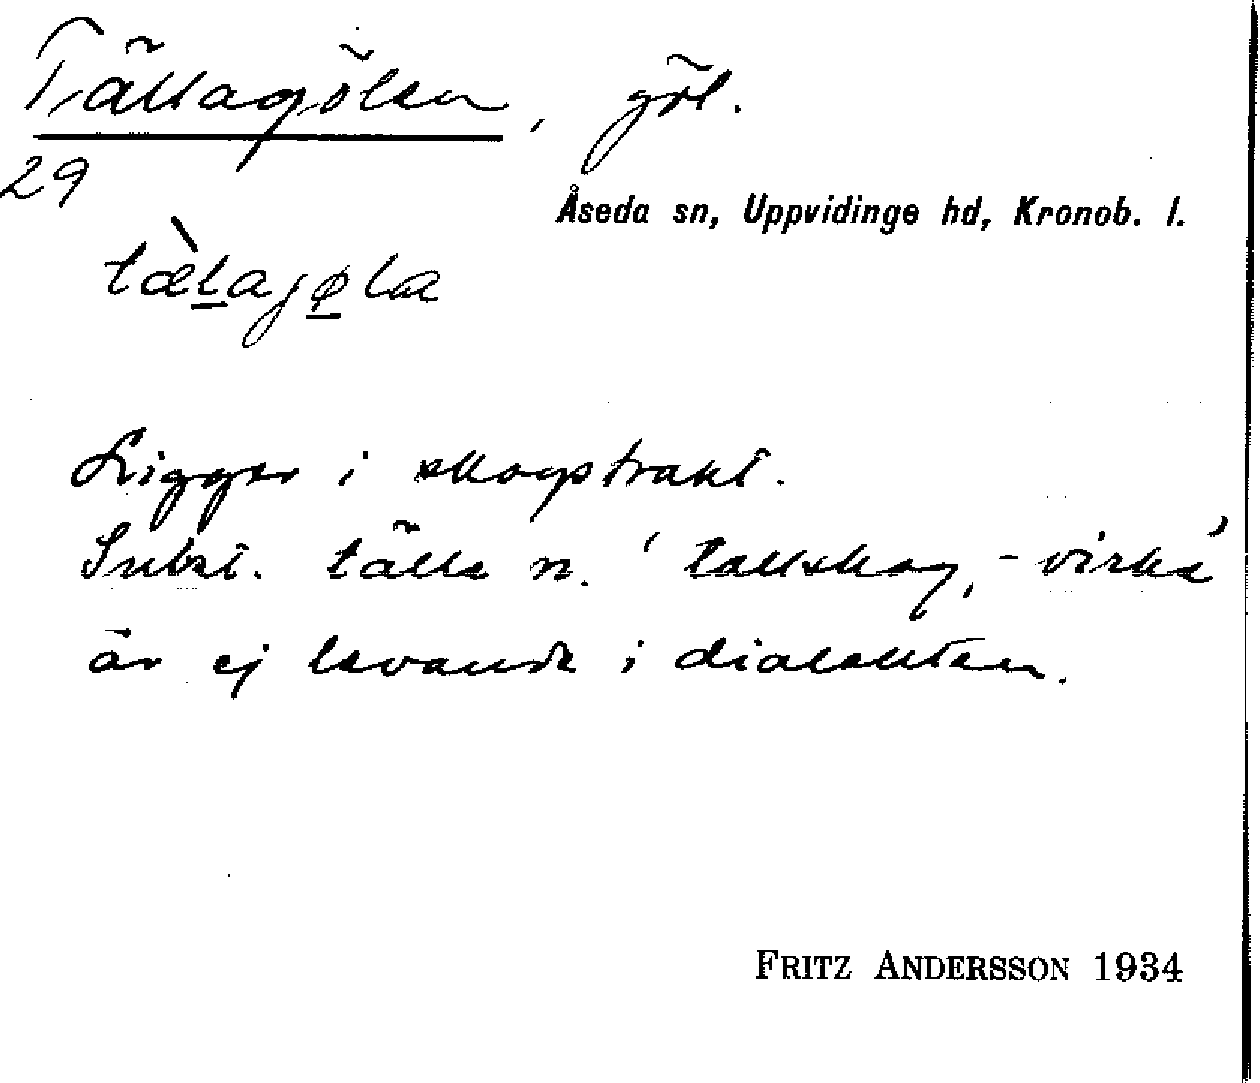 Tällagölen, göl.
29
Åseda sn, Uppvidinge hd, Kronob. l.
tæ̀l̲ajø̲la
Ligger i skogstrakt.
Subst. tälle n. 'tallskog, -virke'
är ej levande i dialekten.
FRITZ ANDERSSON 1934